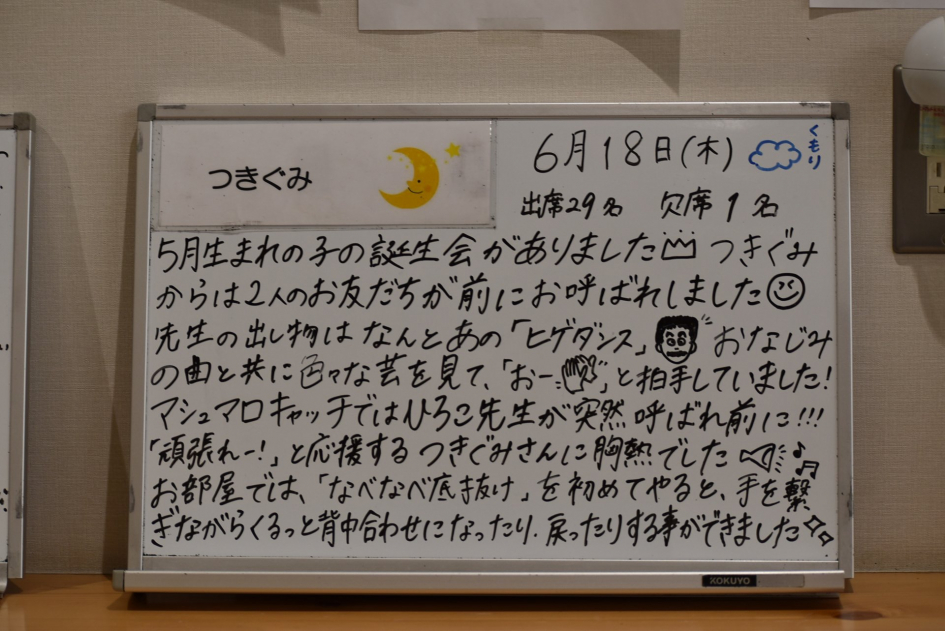 つきぐみ
6月18日(木)
くもり
出席29名 欠席1名
5月生まれの子の誕生会がありました つきぐみ
からは2人のお友だちが前にお呼ばれしました
先生の出し物はなんとあの「ヒゲダンス」 おなじみ
の曲と共に色々な芸を見て、「おー 」と拍手していました!
マシュマロキャッチではひろこ先生が突然呼ばれ前に!!!
「頑張れー!」と応援するつきぐみさんに胸熱でした
お部屋では、「なべなべ底抜け」を初めてやると、手を繋
ぎながらくるっと背中合わせになったり、戻ったりする事ができました
KOKUYO